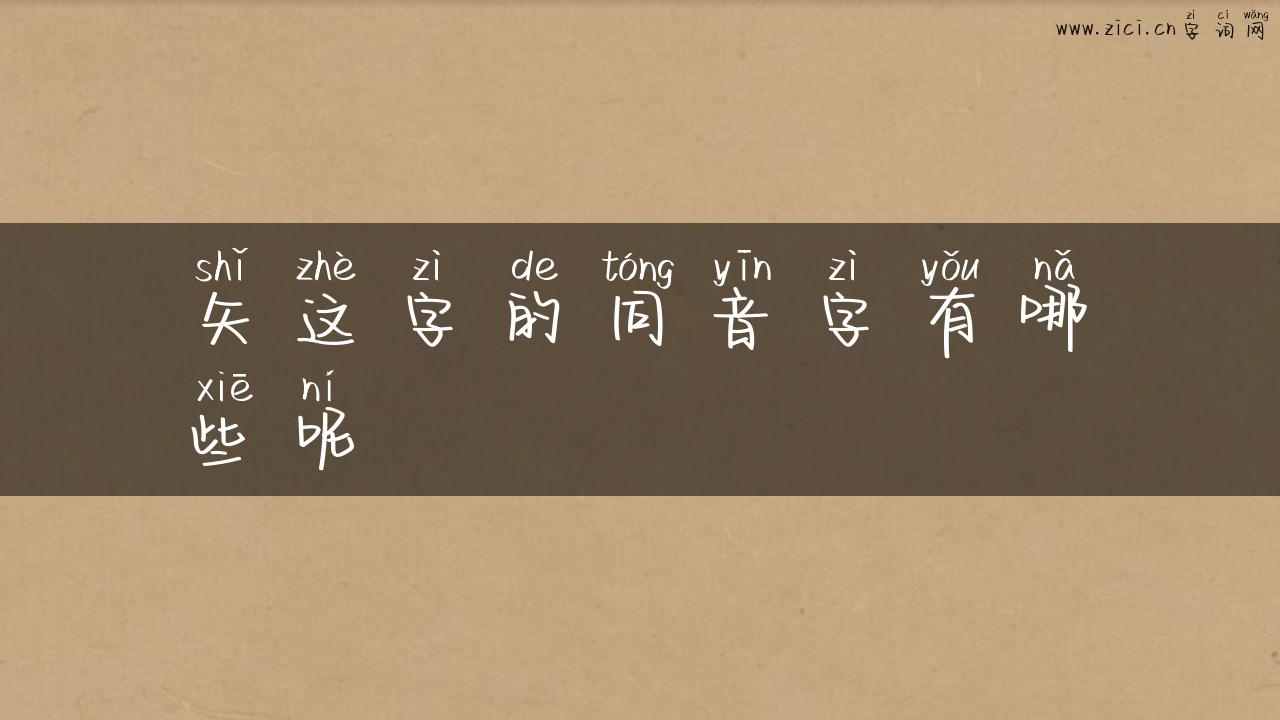 zì cí wǎng
www.zici.cn 字词网
shǐ zhè zì de tóng yīn zì yǒu nǎ
矢这字的同音字有哪
xiē ní
些呢